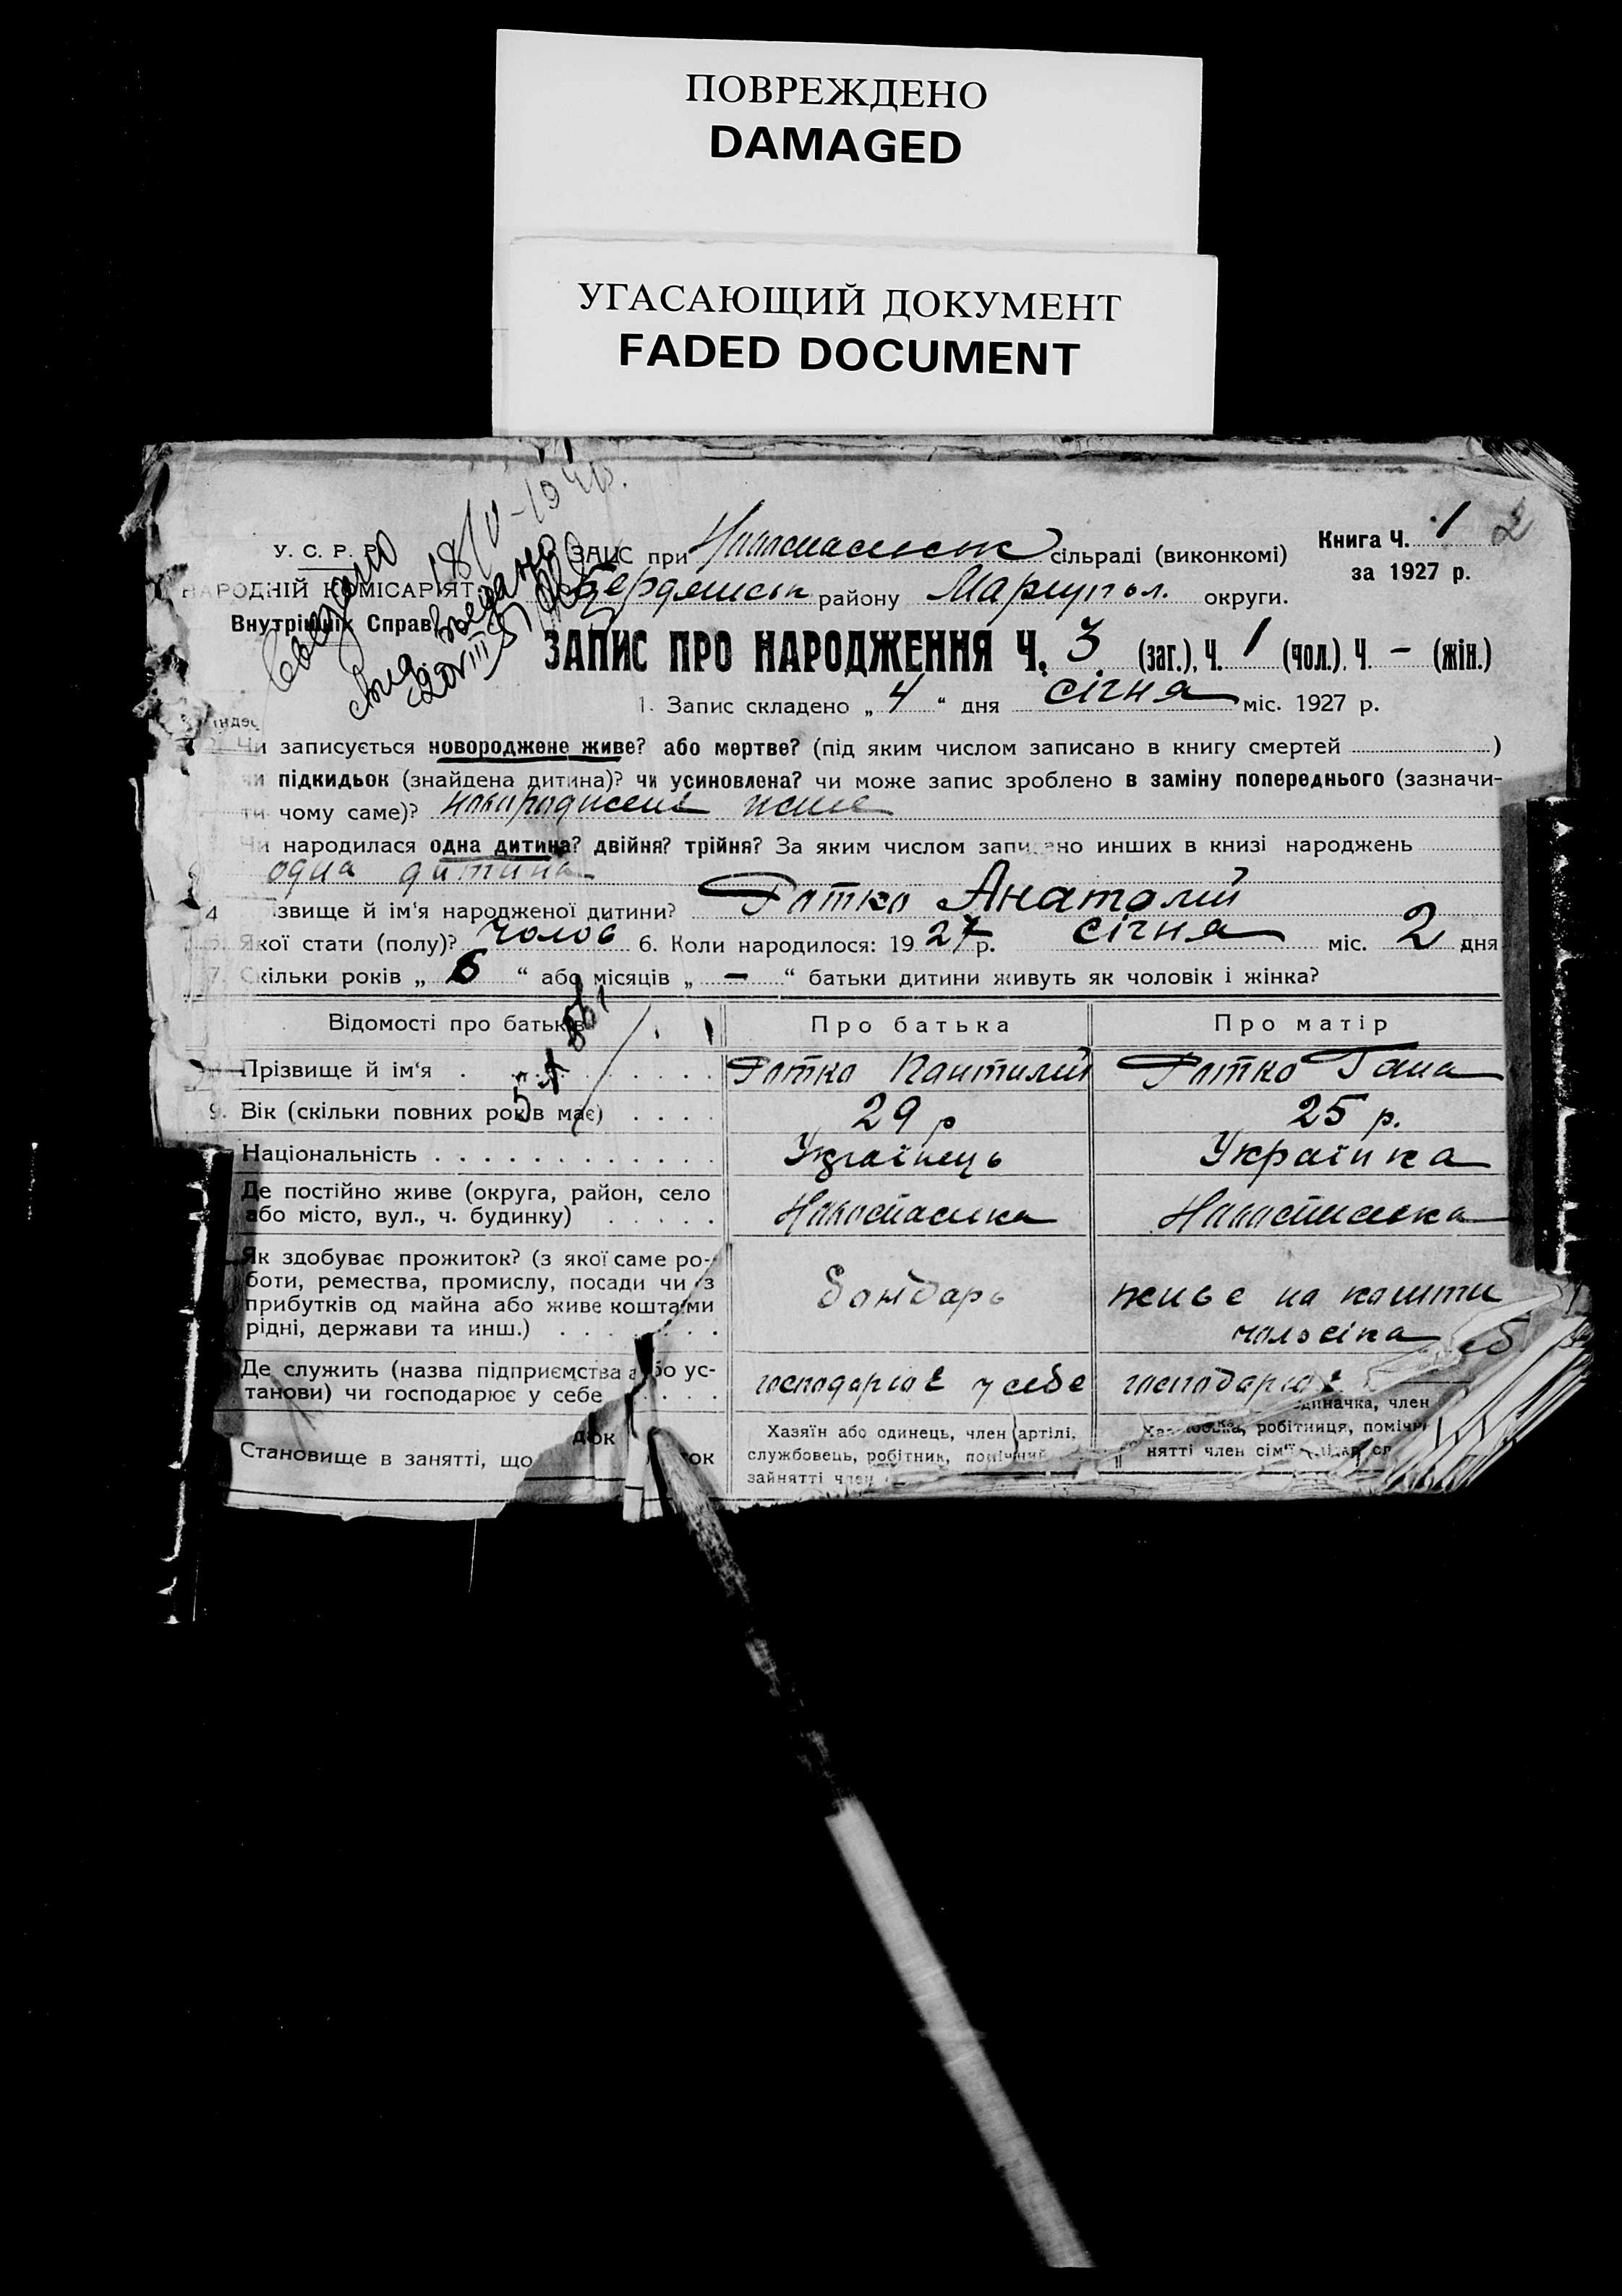 ПОВРЕЖДЕНО
DAMAGED
УГАСАЮЩИЙ ДОКУМЕНТ
FADED DOCUMENT
У. С. Р. Р.
НАРОДНІЙ КОМІСАРІЯТ
Внутрішніх Справ
Книга Ч. 1 2
за 1927 р.
ЗАПИС при сільраді (виконкомі)
Бердянськ району Маріупол. округи.
ЗАПИС ПРО НАРОДЖЕННЯ Ч. 3 (заг.), Ч. 1 (чол.), Ч. – (жін.)
1. Запис складено „ 4 “ дня січня міс. 1927 р.
Чи записується новороджене живе? або мертве? (під яким числом записано в книгу смертей )
чи підкидьок (знайдена дитина)? чи усиновлена? чи може запис зроблено в заміну попереднього (зазначи-
ти чому саме)? новороджене живе
Чи народилася одна дитина? двійня? трійня? За яким числом записано инших в книзі народжень
одна дитина
4 Прізвище й ім‘я народженої дитини? Анатолий
5. Якої стати (полу)? чолов 6. Коли народилося: 1927 р. січня міс. 2 дня
7. Скільки років „ 6 “ або місяців „ – “ батьки дитини живуть як чоловік і жінка?
Відомості про батьків Про батька Про матір
Прізвище й ім‘я
9. Вік (скільки повних років має) 29 р 25 р.
Національність Українець Українка
Де постійно живе (округа, район, село
або місто, вул., ч. будинку) Новоспасівка Новоспасівка
Як здобуває прожиток? (з якої саме ро-
боти, ремества, промислу, посади чи з
прибутків од майна або живе коштами
рідні, держави та инш.) Бондарь живе на кошти
чоловіка
Де служить (назва підприємства або ус-
танови) чи господарює у себе господарює у себе господарює
Становище в занятті, що
Хазяїн або одинець, член артілі,
службовець, робітник, помічний
зайнятті член
одиначка, член
робітниця, помічн
нятті член сім‘ї